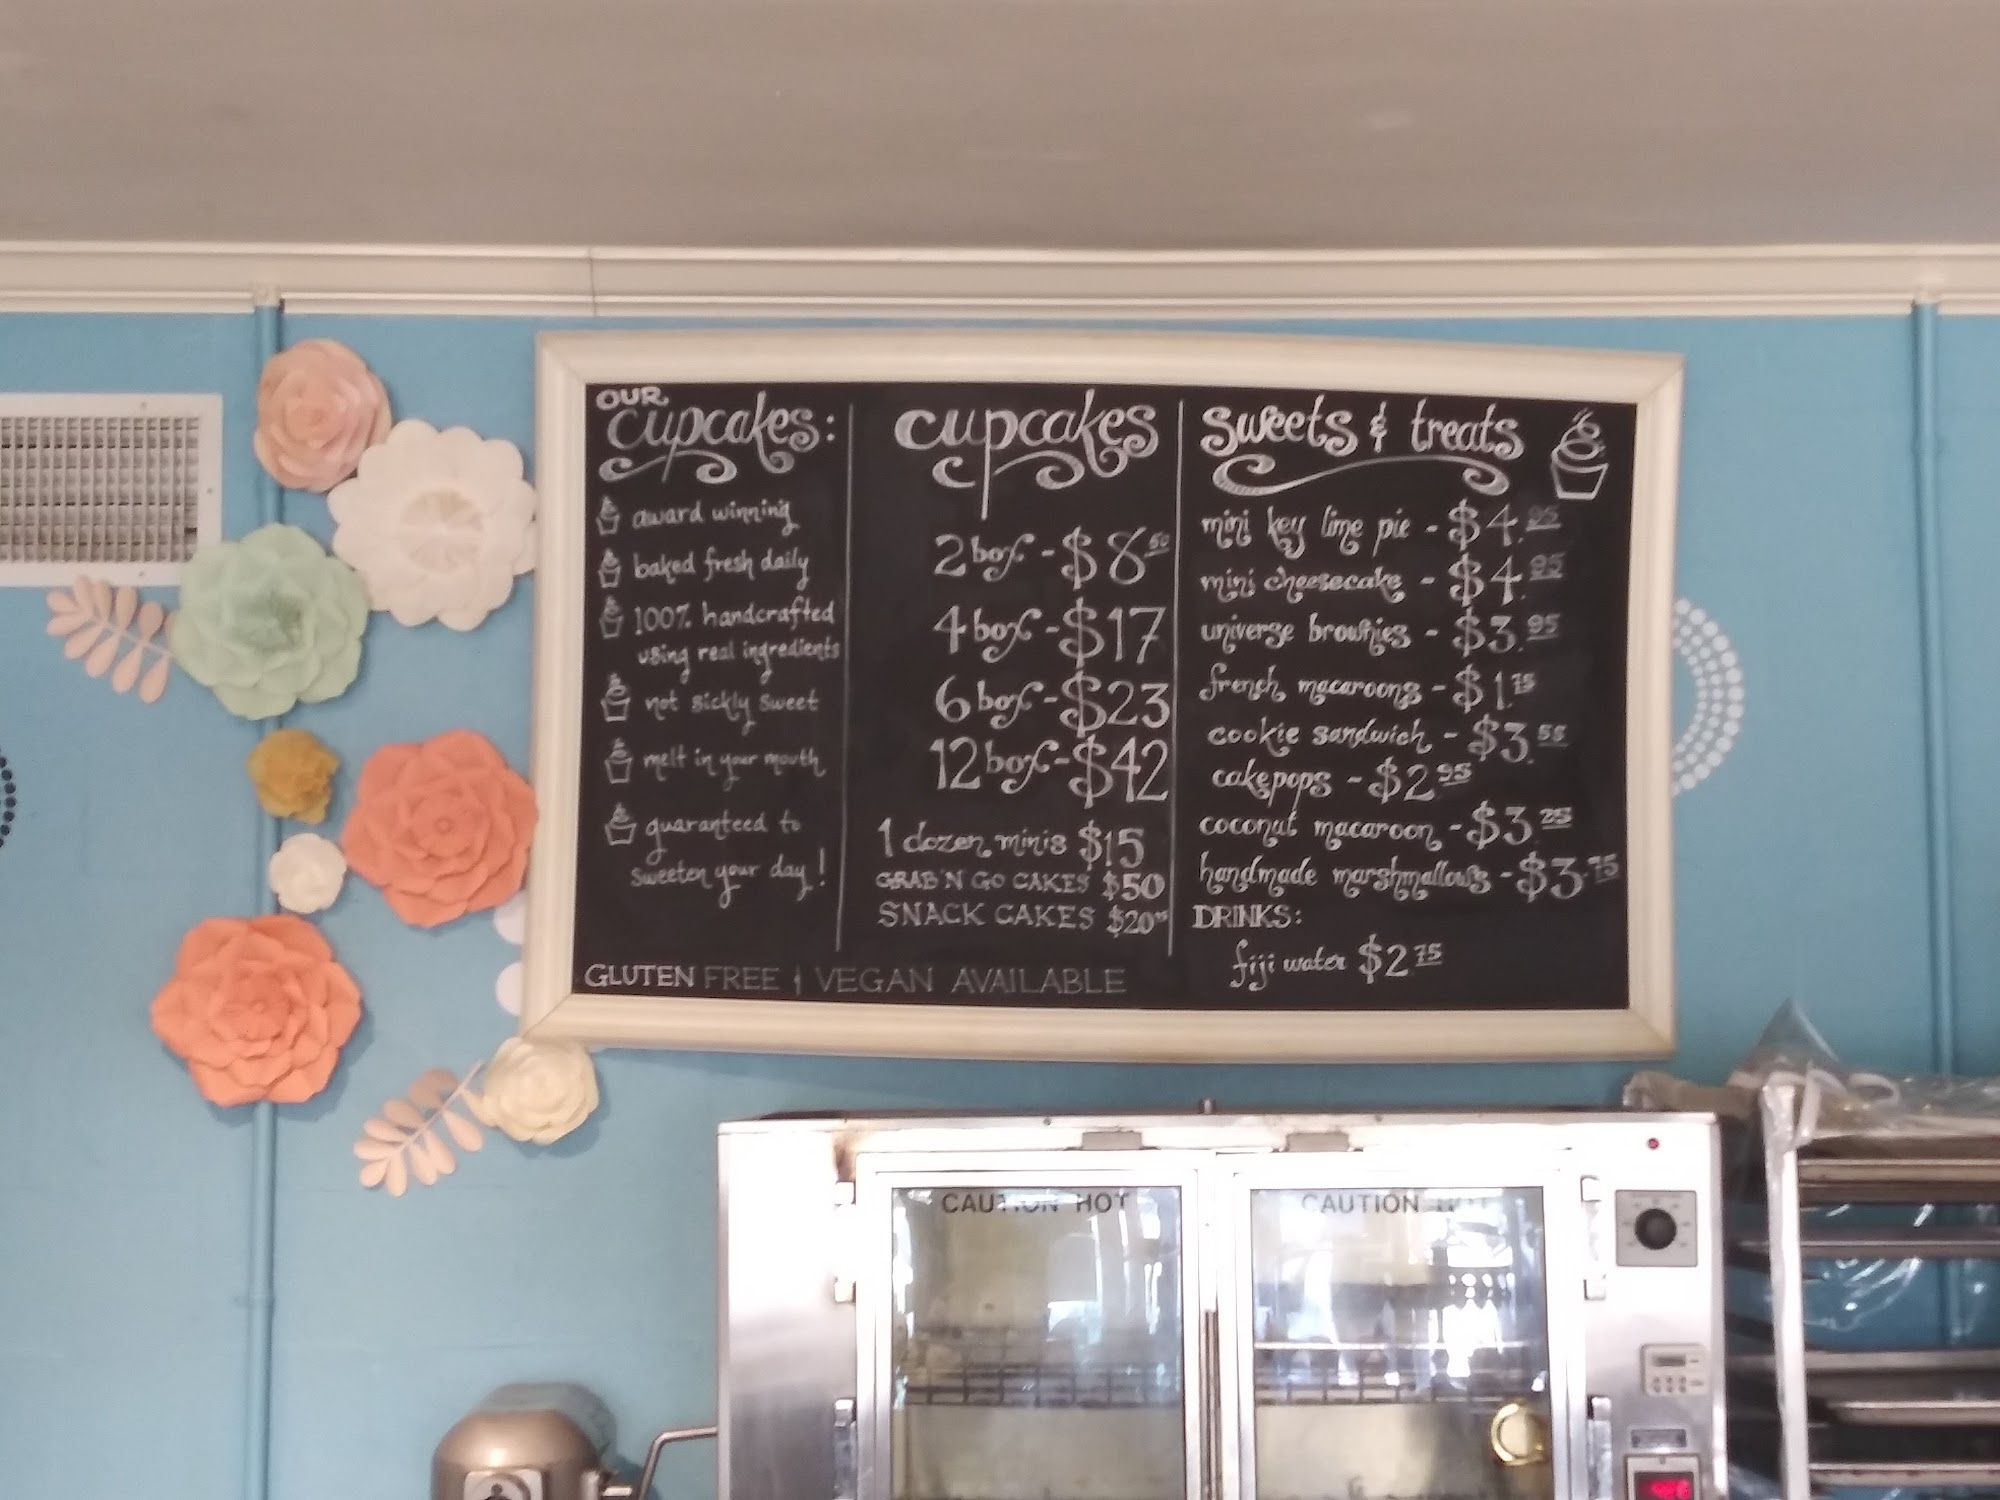 OUR
cupcakes:
award winning
baked fresh daily
100% handcrafted
using real ingredients
not sickly sweet
melt in your mouth
guaranteed to
sweeten your day!
cupcakes
2 box - $8.50
4 box - $17
6 box - $23
12 box - $42
1 dozen minis $15
GRAB'N GO CAKES $50
SNACK CAKES $20
GLUTEN FREE | VEGAN AVAILABLE
sweets & treats
mini key lime pie - $4.95
mini cheesecake - $4.95
universe brownies - $3.95
french macaroons - $1.75
cookie sandwich - $3.55
cakepops - $2.95
coconut macaroon - $3.25
handmade marshmallows - $3.75
DRINKS:
fiji water $2.75
CAUTION HOT
CAUTION HOT